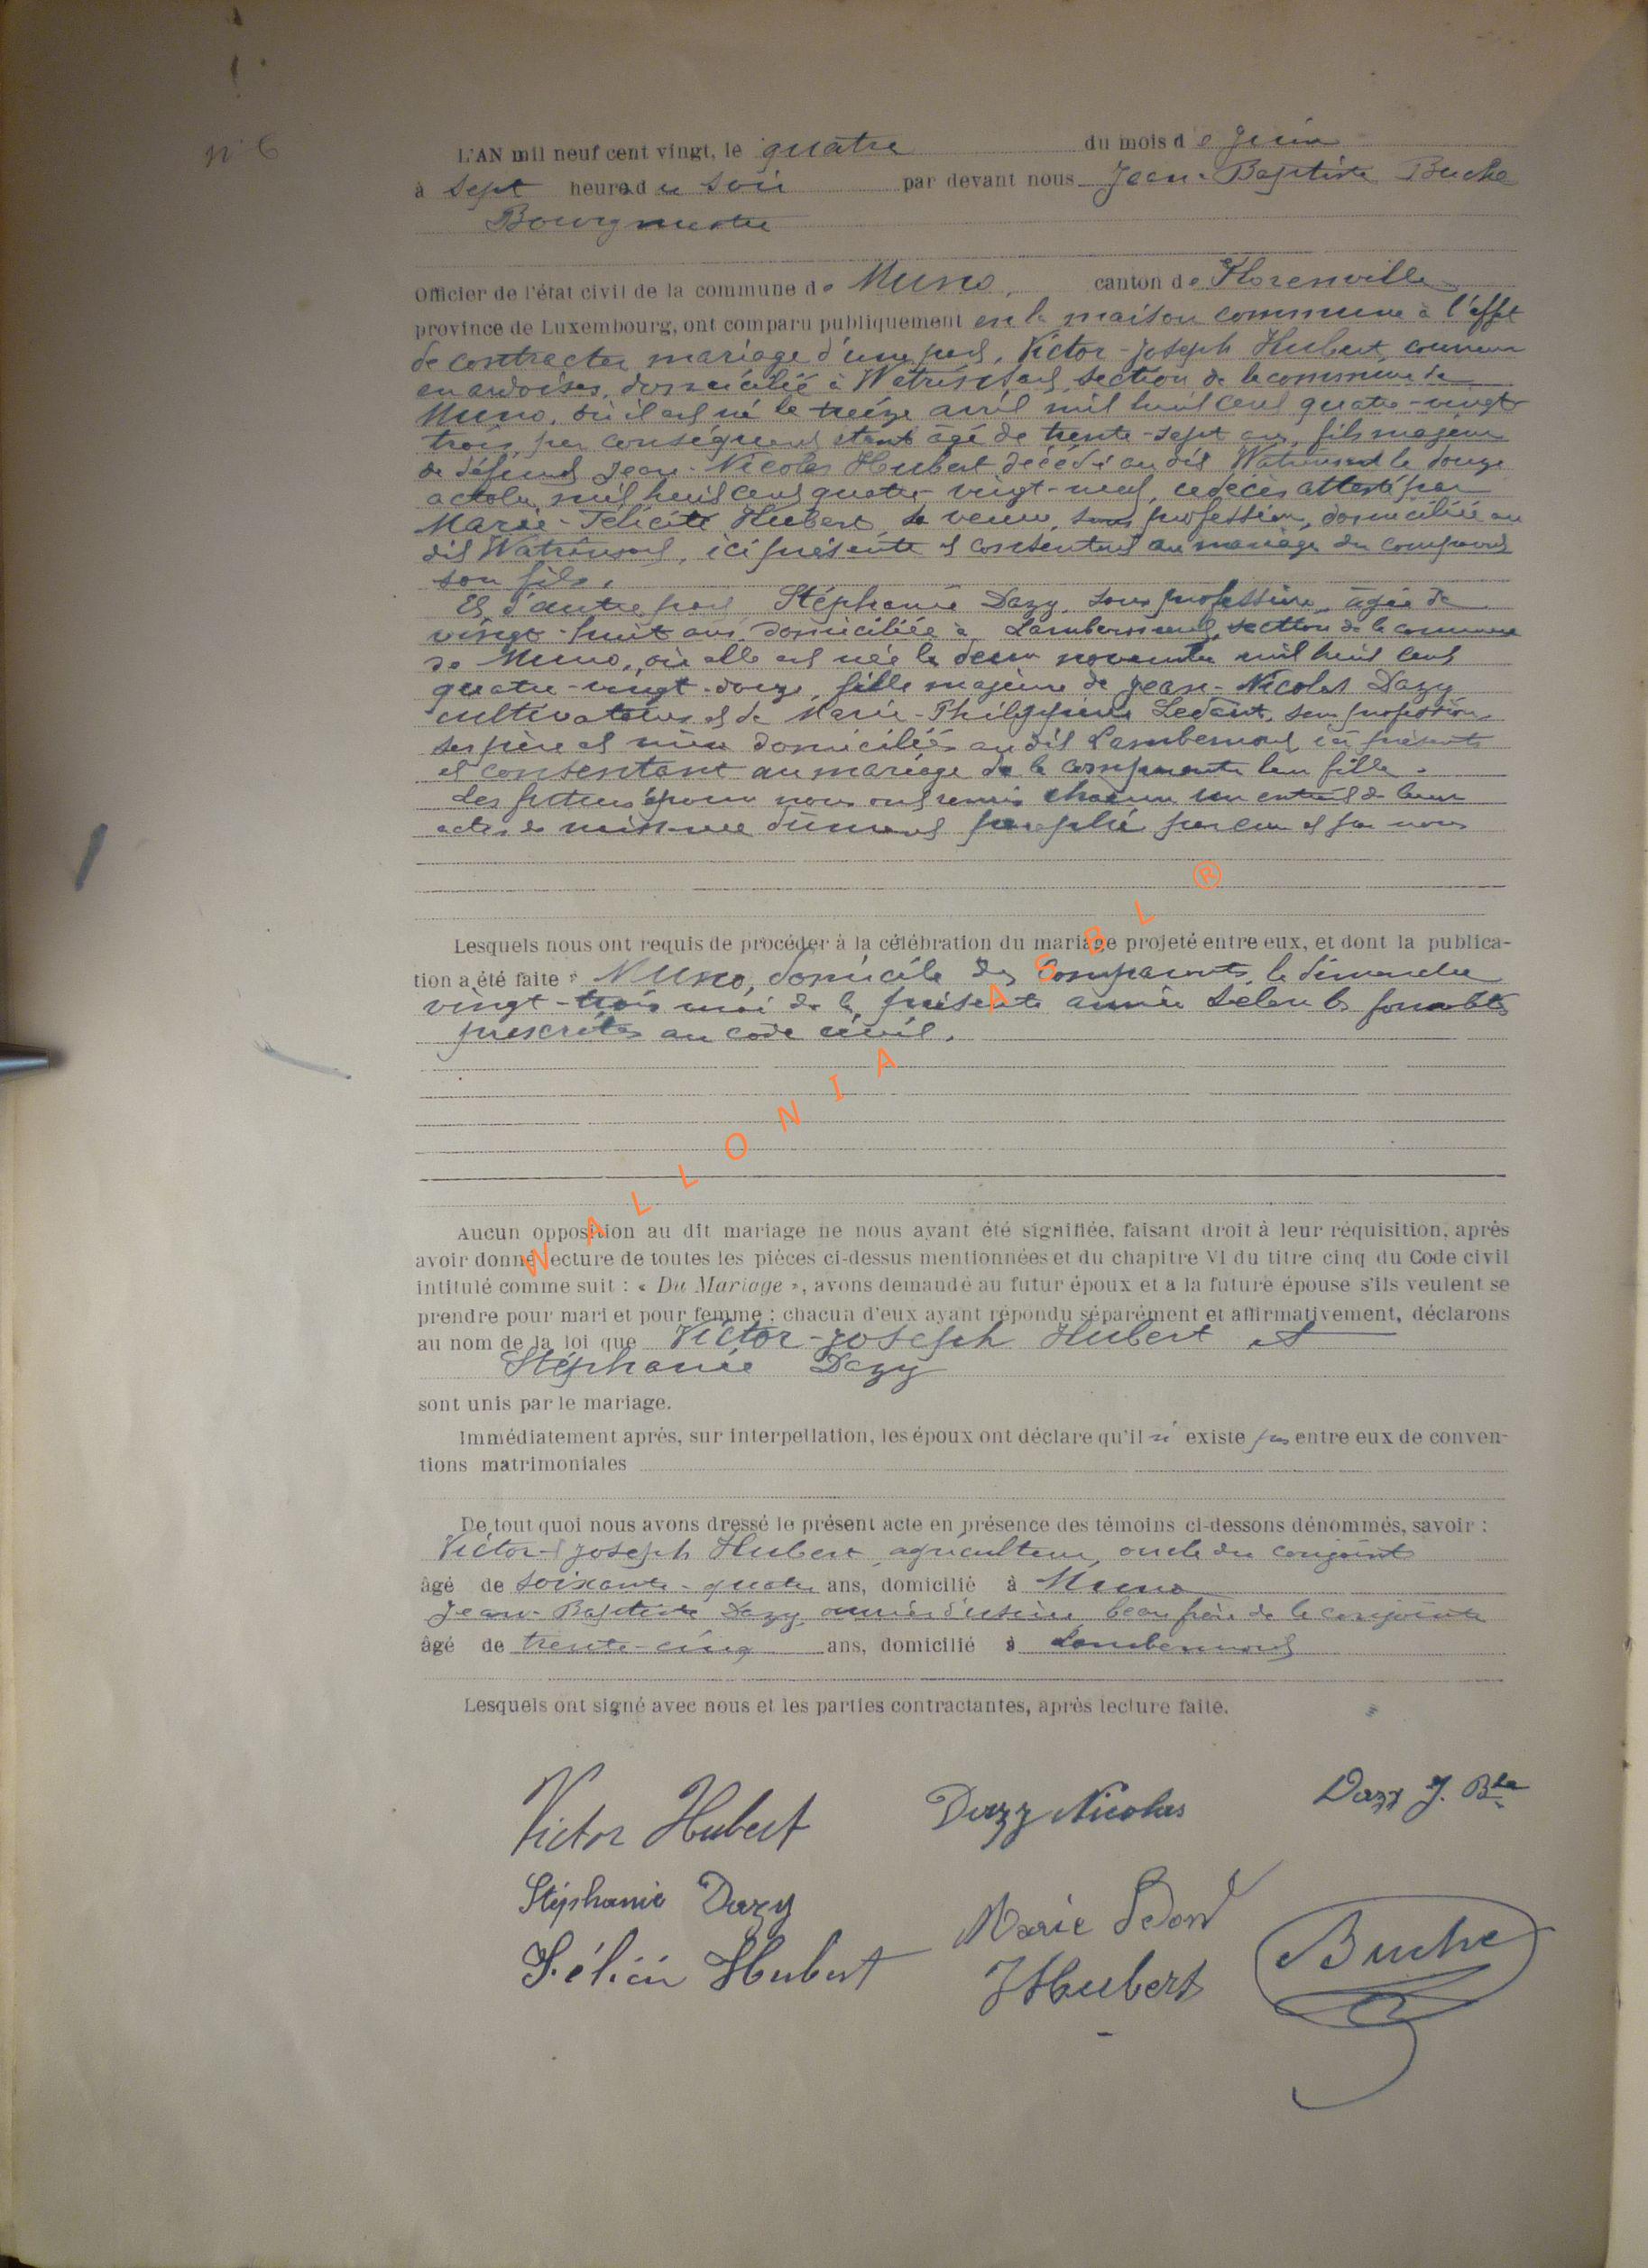 n° 6
L'AN mil neuf cent vingt, le quatre du mois de Juin
à sept heures du soir par devant nous Jean-Baptiste Buche
Bourgmestre
Officier de l'état civil de la commune de Muno, canton de Florenville
province de Luxembourg, ont comparu publiquement en la maison commune à l'effet
de contracter mariage d'une part, Victor-Joseph Hubert, couvreur
en ardoises, domicilié à Watrinsart, section de la commune de
Muno, où il est né le treize avril mil huit cent quatre-vingt
trois, par conséquent étant âgé de trente-sept ans, fils majeur
de défunt Jean-Nicolas Hubert décédé au dit Watrinsart le douze
octobre mil huit cent quatre-vingt-neuf, ce décès attesté par
Marie-Félicité Hubert sa veuve, sans profession, domiciliée au
dit Watrinsart, ici présente et consentant au mariage du comparant
son fils.
Et d'autre part Stéphanie Dazy, sans profession, âgée de
vingt-huit ans, domiciliée à Lambermont, section de la commune
de Muno, où elle est née le deux novembre mil huit cent
quatre-vingt-douze, fille majeure de Jean-Nicolas Dazy
cultivateur et de Marie-Philippine Ledant, sans profession
ses père et mère domiciliés au dit Lambermont ici présents
et consentant au mariage de la comparante leur fille.
Les futurs époux nous ont remis chacun un extrait de leur
acte de naissance dûment paraphé par eux et par nous
Lesquels nous ont requis de procéder à la célébration du mariage projeté entre eux, et dont la publica-
tion a été faite à Muno, domicile des comparants, le dimanche
vingt-trois mai de la présente année selon les formalités
prescrites au code civil.
WALLONIA ASBL ®
Aucun opposition au dit mariage ne nous ayant été signifiée, faisant droit à leur réquisition, après
avoir donné lecture de toutes les pièces ci-dessus mentionnées et du chapitre VI du titre cinq du Code civil
intitulé comme suit : « Du Mariage », avons demandé au futur époux et a la future épouse s'ils veulent se
prendre pour mari et pour femme ; chacua d'eux ayant répondu séparément et affirmativement, déclarons
au nom de la loi que Victor-Joseph Hubert et
Stéphanie Dazy
sont unis par le mariage.
Immédiatement après, sur interpellation, les époux ont déclare qu'il n'existe pas entre eux de conven-
tions matrimoniales
De tout quoi nous avons dressé le présent acte en présence des témoins ci-dessons dénommés, savoir :
Victor-Joseph Hubert, agriculteur, oncle du conjoint
âgé de soixante-quatre ans, domicilié à Muno
Jean-Baptiste Dazy, ouvrier d'usine beau frère de la conjointe
âgé de trente-cinq ans, domicilié à Lambermont
Lesquels ont signé avec nous et les parties contractantes, après lecture faite.
Victor Hubert Dazy Nicolas Dazy J. Bte
Stéphanie Dazy Marie Ledant
Félicie Hubert JHubert Buche